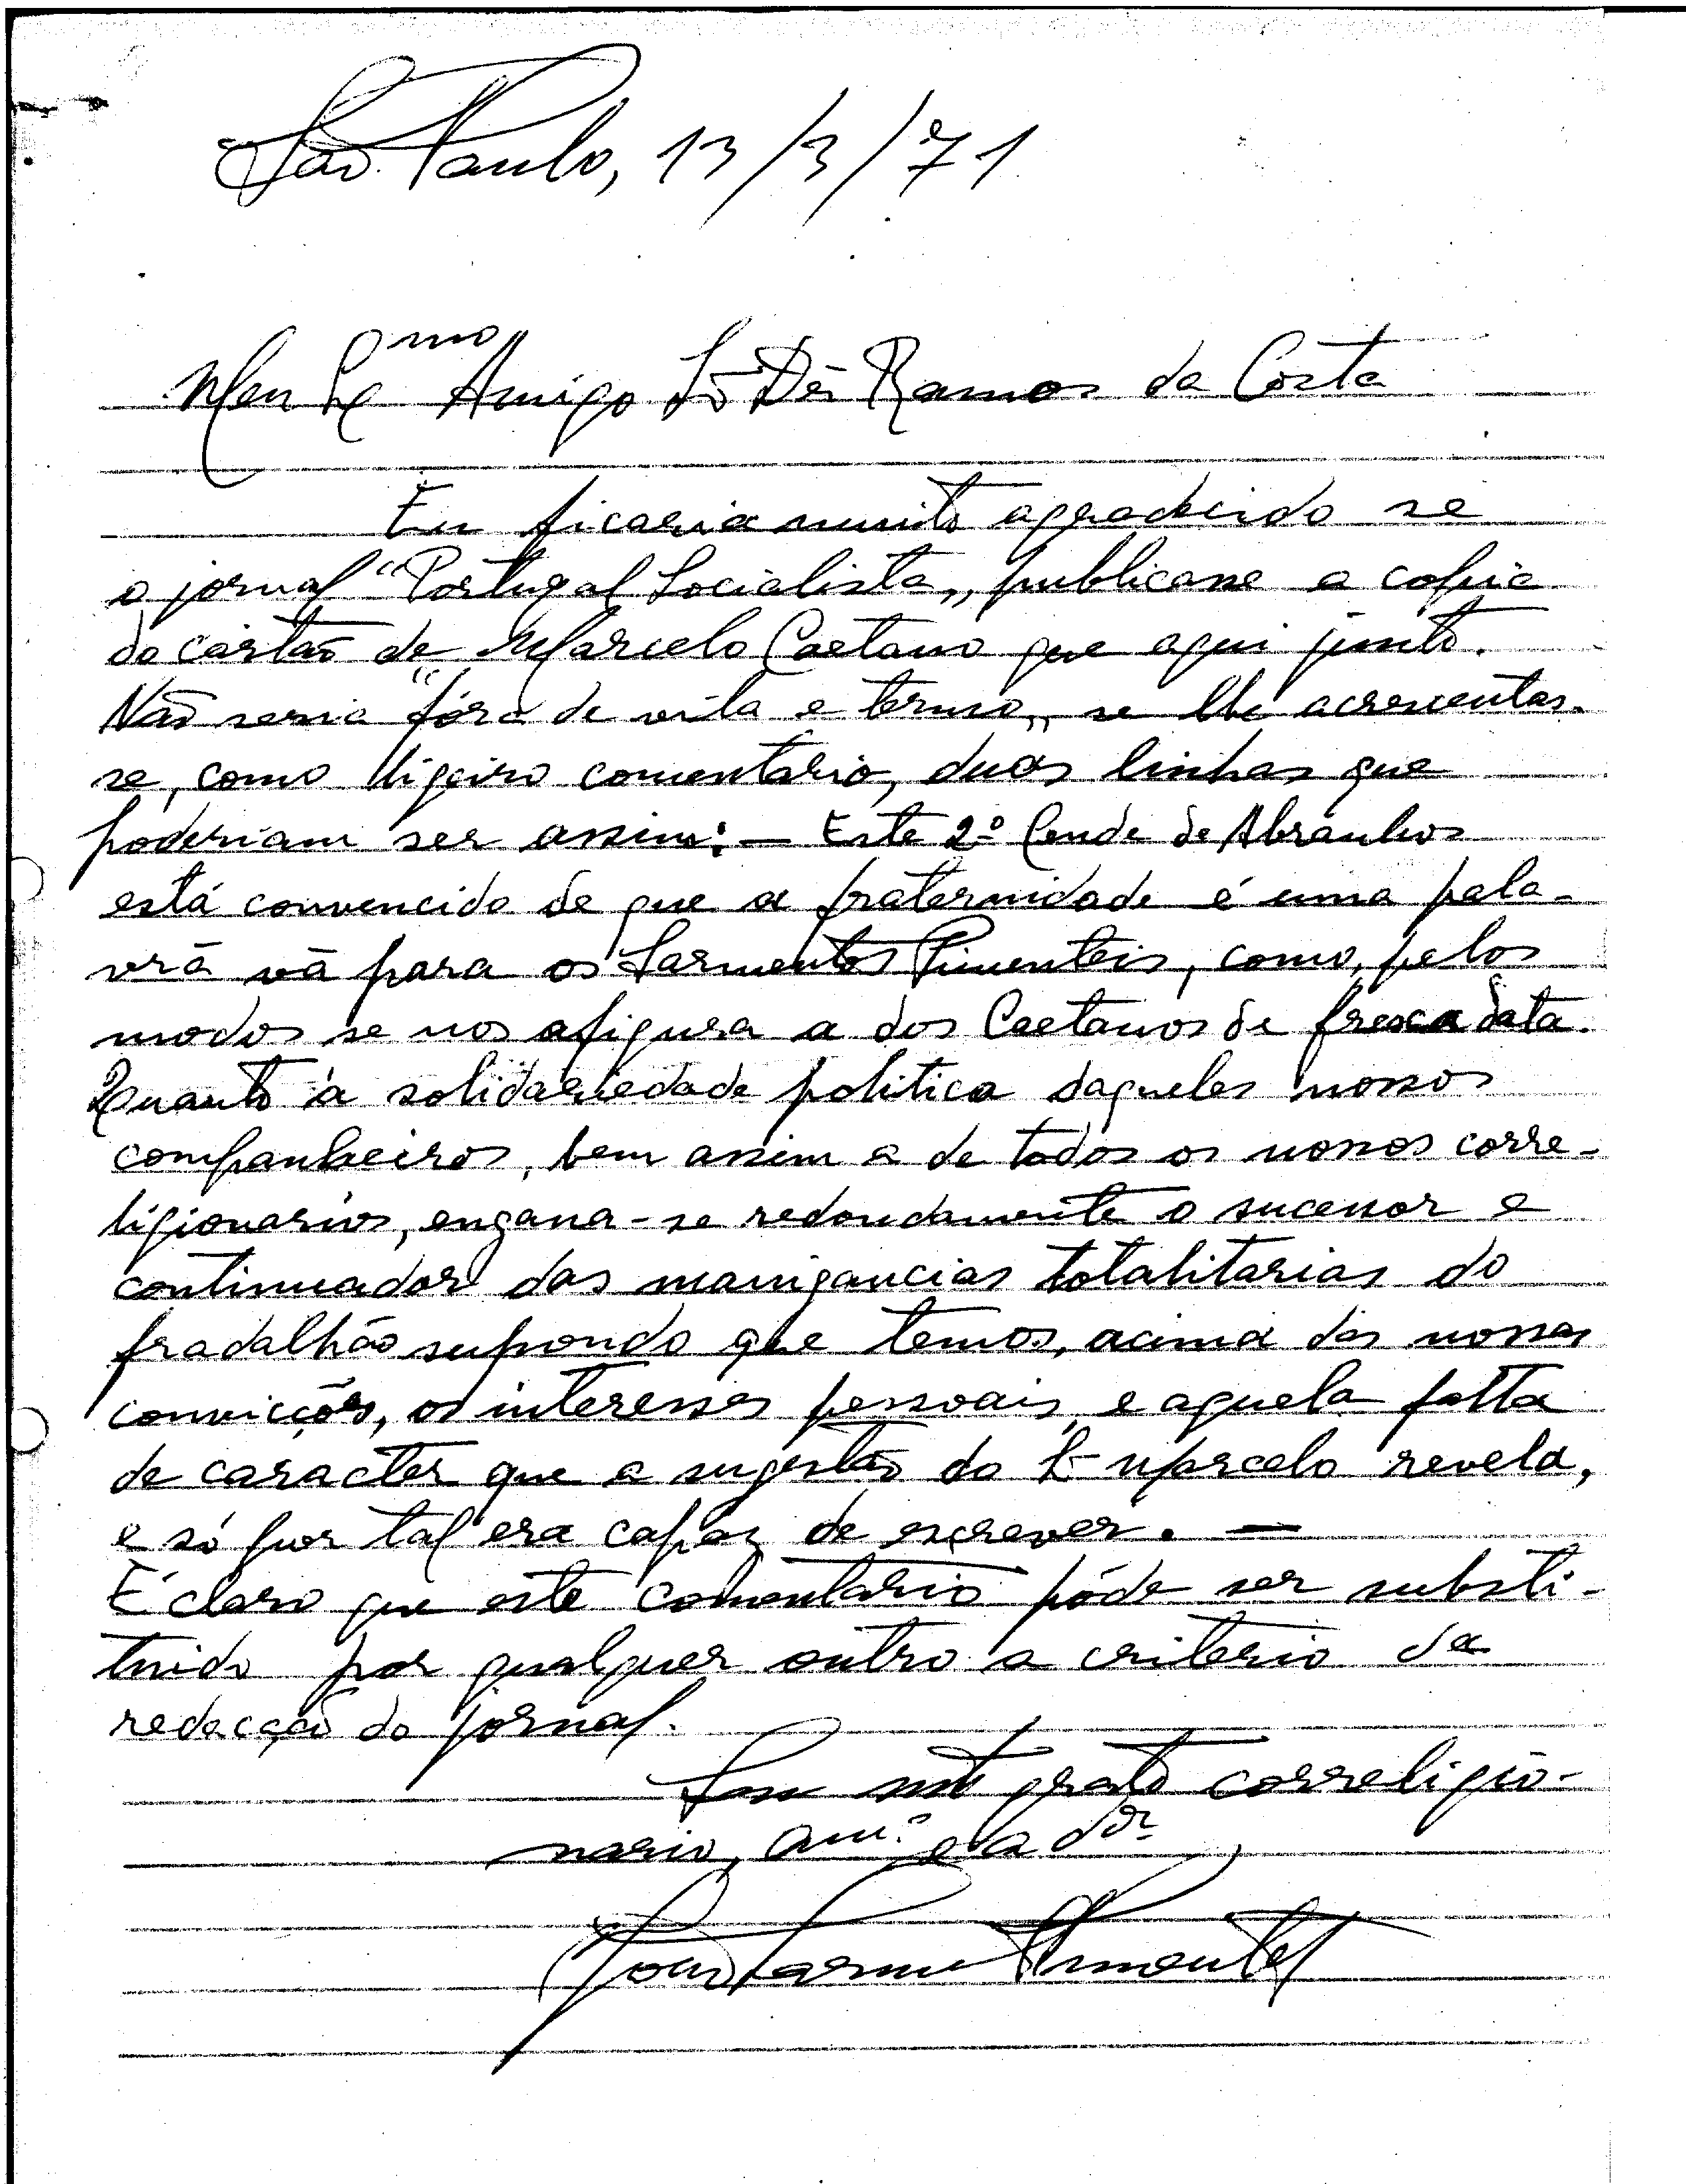 São Paulo, 13/3/71
Meu Exmo Amigo Sr Dr Ramos da Costa
Eu ficaria muito agradecido se
o jornal "Portugal Socialista„ publicasse a copia
do cartão de Marcelo Caetano que aqui junto.
Não seria "fóra de vila e termo„ se lhe acrescentas-
se, como ligeiro comentario, duas linhas que
poderiam ser assim: — Este 2º Conde de Abranhos
está convencido de que a fraternidade é uma pala-
vra vã para os Sarmentos Pimenteis, como, pelos
modos se nos afigura a dos Caetanos de fresca data.
Quanto à solidariedade politica daqueles nossos
companheiros, bem assim a de todos os nossos corre-
ligionarios, engana-se redondamente o sucessor e
continuador das manigancias totalitarias do
fradalhão supondo que temos, acima das nossas
convicções, os interesses pessoais, e aquela falta
de caracter que a sugestão do Marcelo revela,
e só por tal era capaz de escrever. —
É claro que este comentario póde ser substi-
tuido por qualquer outro a criterio da
redacção do jornal.
Sou mto grato correligio-
nario, amº e ador
João Sarmento Pimentel